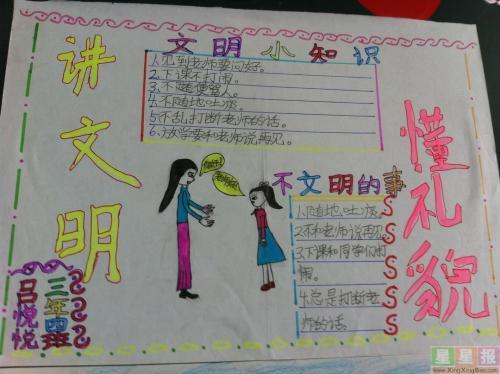 讲文明
懂礼貌
文明小知识
1.见到老师要问好。
2.下课不打闹。
3.不随便骂人。
4.不随地吐痰。
5.不乱打断老师的话。
6.放学要和老师说再见。
不文明的事
1.随地吐痰。
2.不和老师说再见。
3.下课和同学们打
闹。
4.总是打断老
师的话。
三年四班
吕悦悦
星星报
www.XingXingBao.com